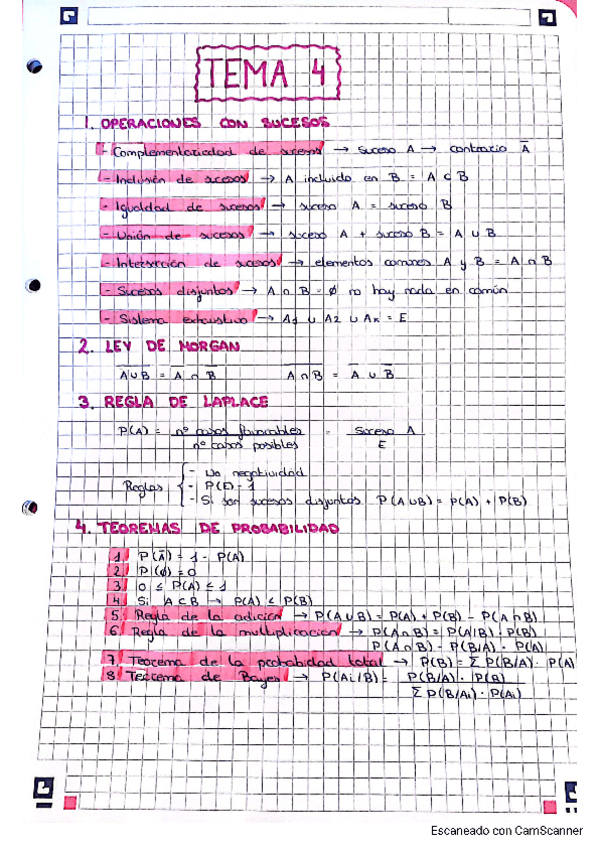 TEMA 4
1. OPERACIONES CON SUCESOS
- Complementariedad de sucesos → suceso A → contrario A̅
- Inclusión de sucesos → A incluido en B = A ⊂ B
- Igualdad de sucesos → suceso A = suceso B
- Unión de sucesos → suceso A + suceso B = A ∪ B
- Intersección de sucesos → elementos comunes A y B = A ∩ B
- Sucesos disjuntos → A ∩ B = ∅ no hay nada en común
- Sistema exhaustivo → A1 ∪ A2 ∪ An = E
2. LEY DE MORGAN
A̅∪̅B̅ = A̅ ∩ B̅ A̅∩̅B̅ = A̅ ∪ B̅
3. REGLA DE LAPLACE
P(A) = nº casos favorables / nº casos posibles = Suceso A / E
Reglas { - No negatividad
- P(E) = 1
- Si son sucesos disjuntos P(A∪B) = P(A) + P(B)
4. TEOREMAS DE PROBABILIDAD
1. P(A̅) = 1 - P(A)
2. P(∅) = 0
3. 0 ≤ P(A) ≤ 1
4. Si A ⊂ B → P(A) ≤ P(B)
5. Regla de la adición → P(A∪B) = P(A) + P(B) - P(A∩B)
6. Regla de la multiplicación → P(A∩B) = P(A/B) · P(B)
P(A∩B) = P(B/A) · P(A)
7. Teorema de la probabidad total → P(B) = Σ P(B/A) · P(A)
8. Teorema de Bayes → P(Ai/B) = P(B/A) · P(B) / Σ P(B/Ai) · P(Ai)
Escaneado con CamScanner